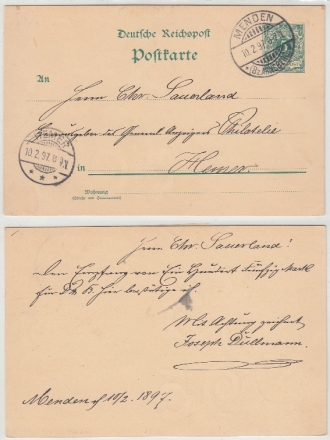 Deutsche Reichspost
Postkarte
MENDEN
10.2.97
An
Herrn Chr. Sauerland
Herausgeber des General-Anzeigers f. Philatelie
10.2.97. 8-9N
in Hemer
Wohnung
Herrn Chr. Sauerland!
Den Empfang von Ein Hundert fünfzig Mark
für bestätige ich
Mit Achtung zeichnet
Joseph Düllmann.
Menden d 10/2. 1897.